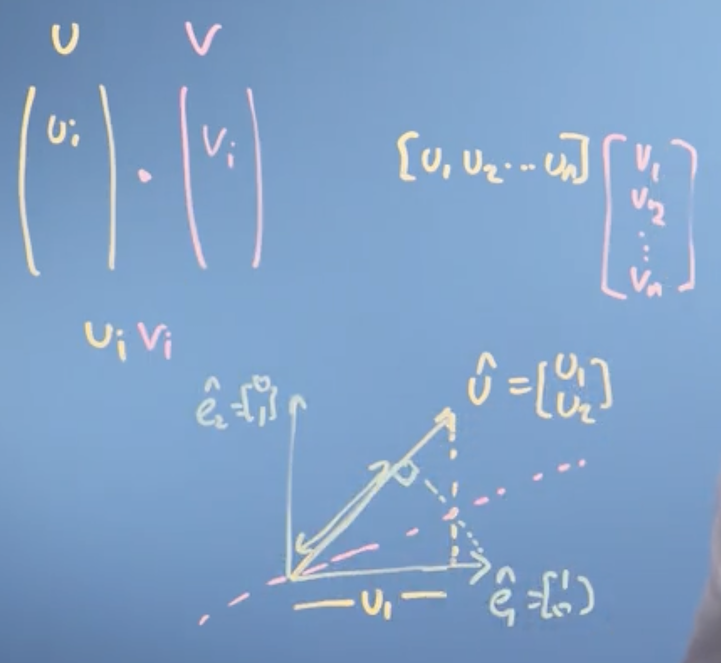 U V
(Uᵢ) · (Vᵢ)
[U₁ U₂ ... Uₙ] [V₁ V₂ ⋮ Vₙ]
Uᵢ Vᵢ
ê₂ = [0 1]
Û = [U₁ U₂]
U₁
ê₁ = [1 0]